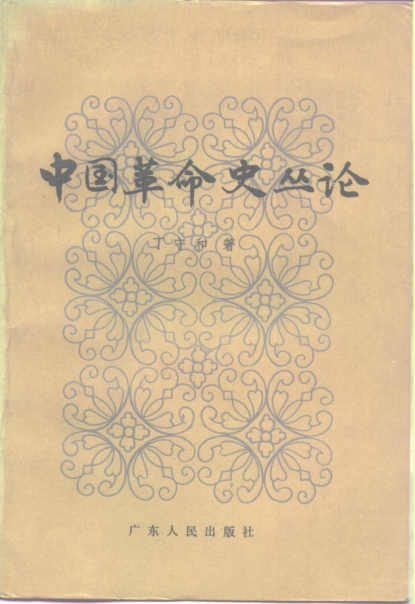 中国革命史丛论
丁守和 著
广东人民出版社